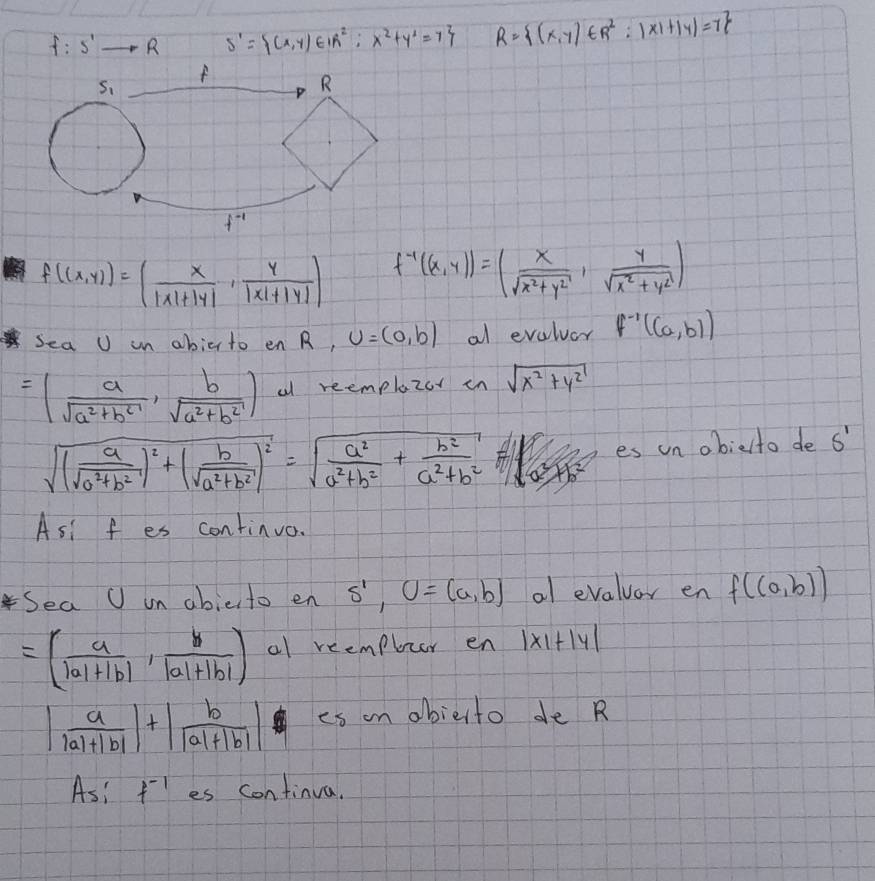 f: S' → R   S' = {(x,y) ∈ ℝ² : x²+y² = 1}   R = {(x,y) ∈ ℝ² : |x|+|y| = 1}
S₁   f   R
f⁻¹
f((x,y)) = (x/(|x|+|y|), y/(|x|+|y|))   f⁻¹((x,y)) = (x/√(x²+y²), y/√(x²+y²))
* Sea U un abierto en R, U=(a,b) al evaluar f⁻¹((a,b))
= (a/√(a²+b²), b/√(a²+b²)) al reemplazar en √(x²+y²)
√((a/√(a²+b²))² + (b/√(a²+b²))²) = √(a²/(a²+b²) + b²/(a²+b²)) es un abierto de S'
Así f es continua.
* Sea U un abierto en S', U=(a,b) al evaluar en f((a,b))
= (a/(|a|+|b|), b/(|a|+|b|)) al reemplazar en |x|+|y|
|a/(|a|+|b|)| + |b/(|a|+|b|)| es un abierto de R
Así f⁻¹ es continua.